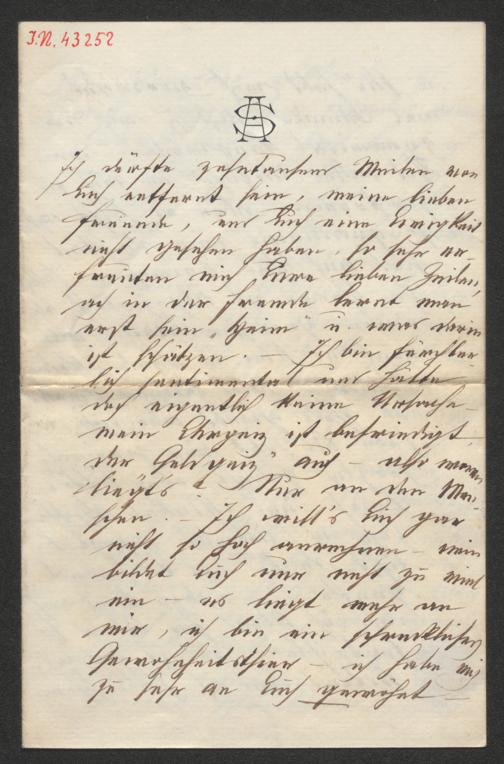 I.N. 43252
AS
Ich dürfte zehntausend Meilen von
Euch entfernt sein, meine lieben
Freunde, und Euch eine Ewigkeit
nicht gesehen haben so sehr er-
freuten mich Eure lieben Zeilen,
ach in der Fremde lernt man
erst sein „Heim“ u. was darin
ist schätzen. – Ich bin fürchter
lich sentimental und hätte
doch eigentlich keine Ursache –
mein Ehrgeiz ist befriedigt
der Geldgeiz auch – also woran
liegts? Nur an den Men-
schen. – Ich will's Euch gar
nicht so hoch anrechnen – nein
bildet Euch nur nicht zu viel
ein – es liegt mehr an
mir, ich bin ein schreckliches
Gewohnheitsthier – ich habe mich
zu sehr an Euch gewöhnt –